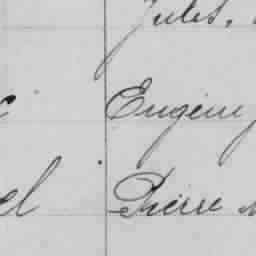 Jules,
c Eugène
el Pierre